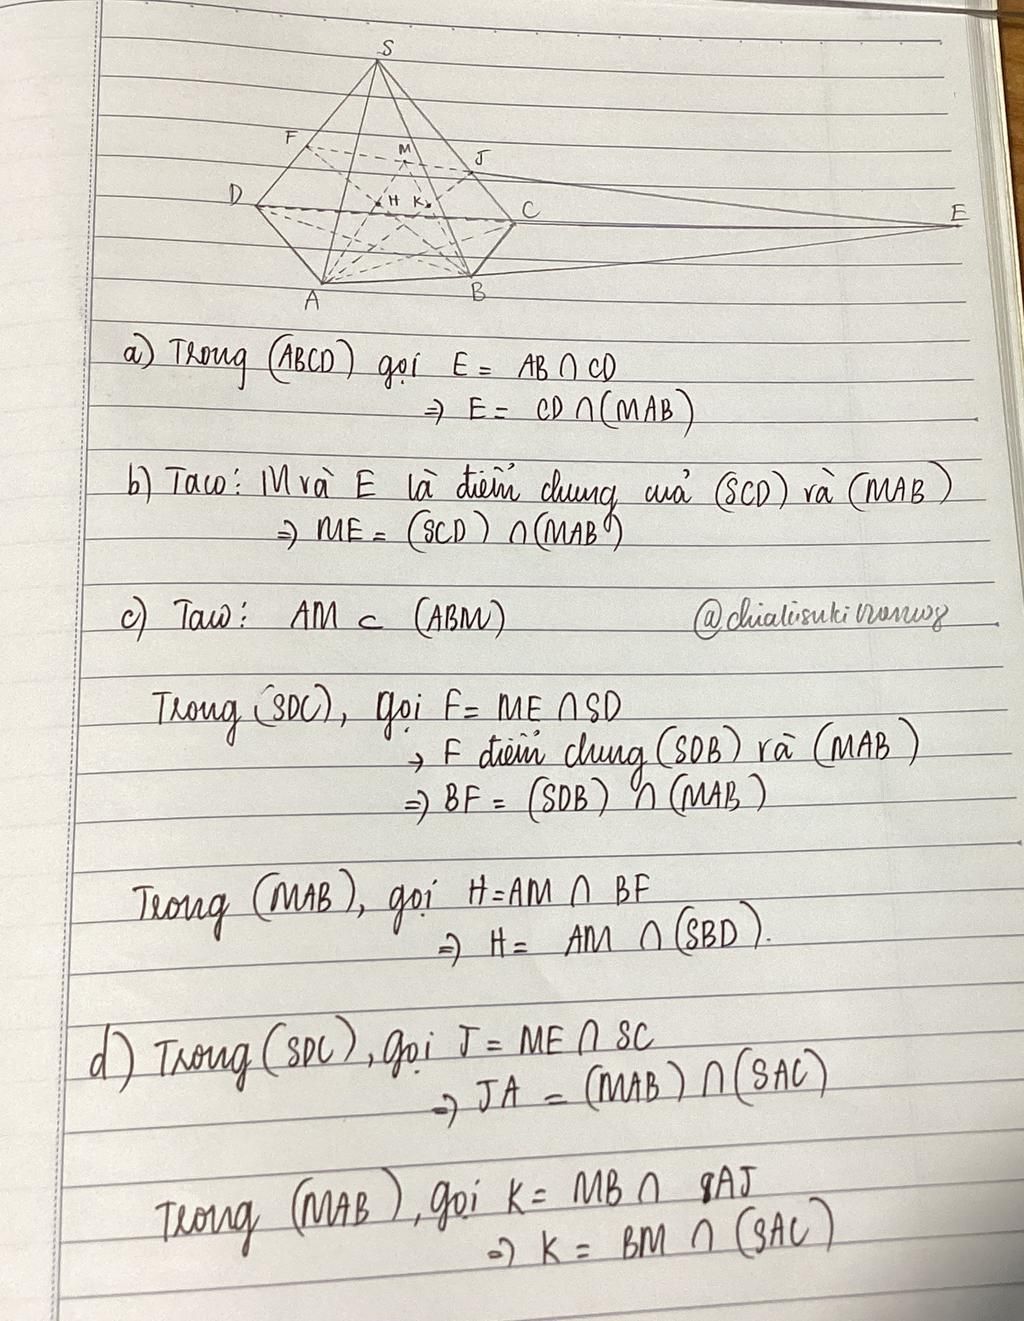 S
F
M
J
D
H
K
C
E
A
B
a) Trong (ABCD) gọi E = AB ∩ CD
⇒ E = CD ∩ (MAB)
b) Ta có: M và E là điểm chung của (SCD) và (MAB)
⇒ ME = (SCD) ∩ (MAB)
c) Ta có: AM ⊂ (ABM)
Trong (SDC), gọi F = ME ∩ SD
→ F điểm chung (SDB) và (MAB)
⇒ BF = (SDB) ∩ (MAB)
Trong (MAB), gọi H = AM ∩ BF
⇒ H = AM ∩ (SBD).
d) Trong (SDC), gọi J = ME ∩ SC
⇒ JA = (MAB) ∩ (SAC)
Trong (MAB), gọi K = MB ∩ AJ
⇒ K = BM ∩ (SAC)